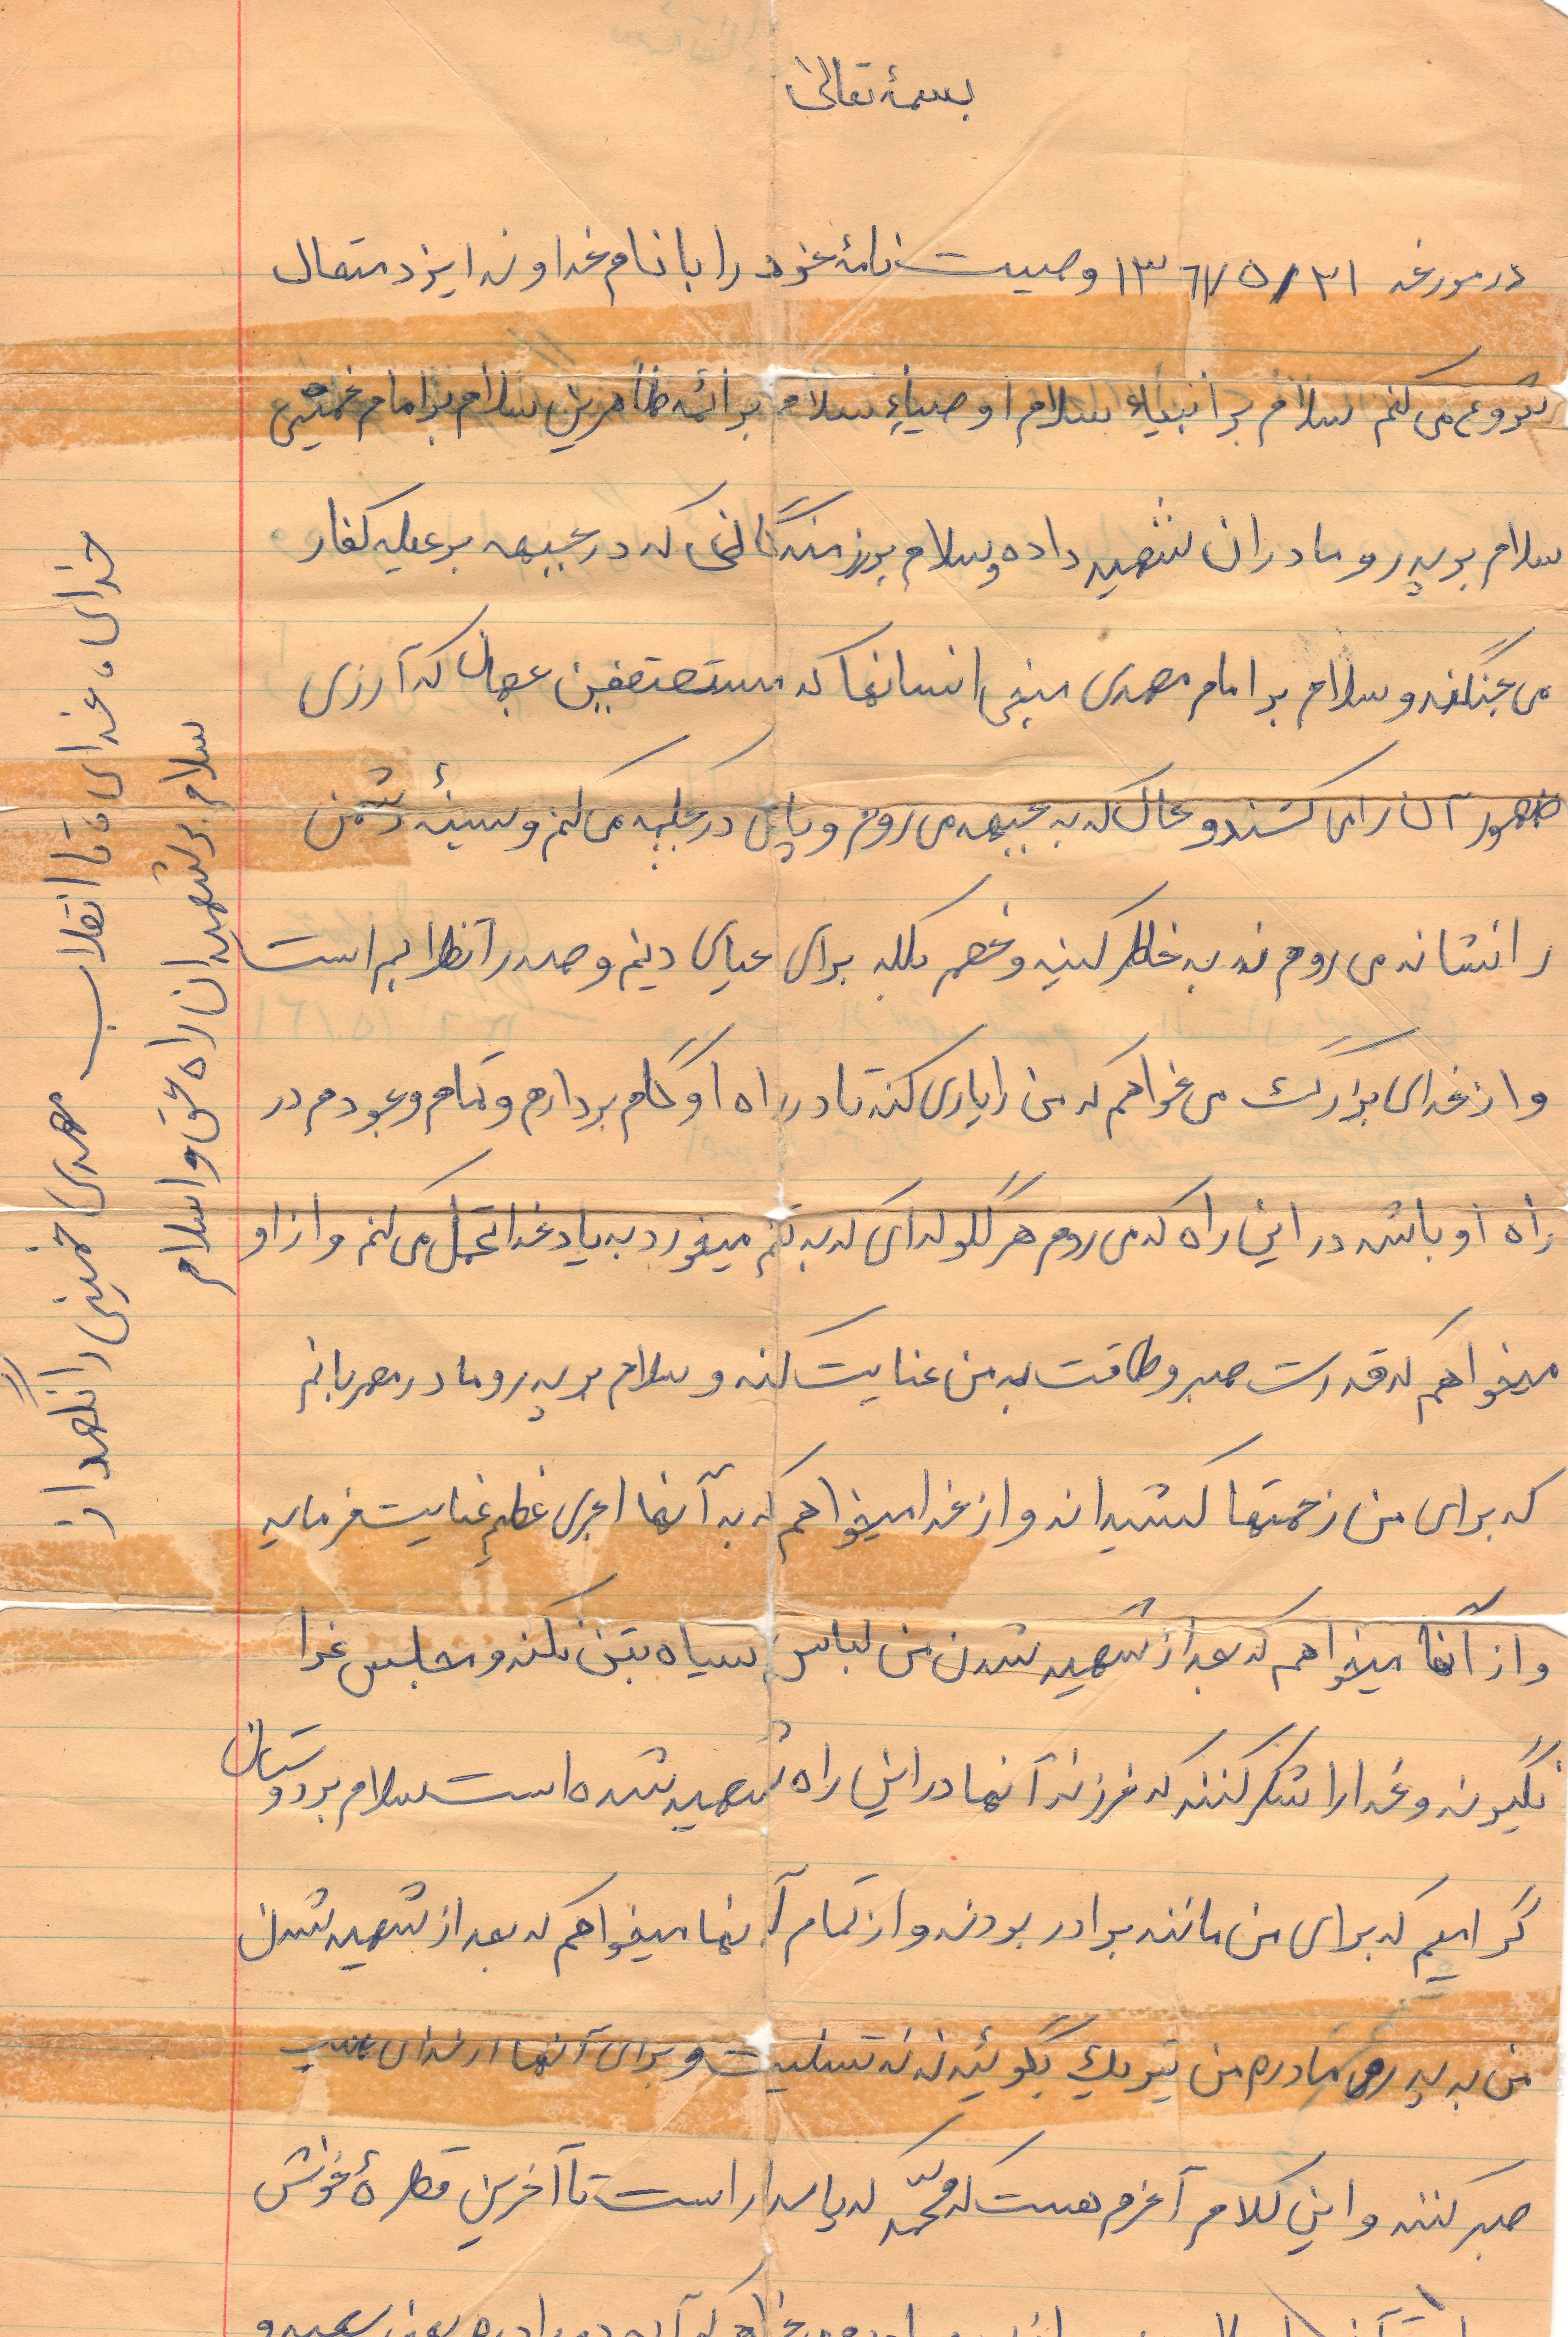 بسمهٔ تعالی
در مورخه ۱۳۶۱/۵/۳۱ وصیت نامهٔ خود را با نام خداوند ایزد متعال
شروع می کنم سلام بر انبیاء سلام اوصیاء سلام بر ائمه طاهرین سلام بر امام خمینی
سلام بر پدر و مادران شهید داده و سلام بر رزمندگانی که در جبهه بر علیه کفار
می جنگند و سلام بر امام مهدی منجی انسانها که مستضعفین جهان که آرزی
ظهور آن را می کشند و حال که به جبهه می روم و پای در جبهه می کنم و سینهٔ دشمن
را نشانه می روم نه به خاطر کینه و خصم بلکه برای حیای دینم و صدر انقلابم است
و از خدای بزرگ می خواهم که من را یاری کند تا در راه او گام بردارم و تمام وجودم در
راه او باشد در این راه که می روم هر گلوله ای که به تنم میخورد به یاد خدا تحمل می کنم و از او
میخواهم که قدرت صبر و طاقت به من عنایت کند و سلام بر پدر و مادر مهربانم
که برای من زحمتها کشیداند و از خدا میخواهم که به آنها اجری عظیم عنایت فرماید
و از آنها میخواهم که بعد از شهید شدن من لباس سیاه بتن نکند و مجلس عزا
نگیرند و خدا را شکر کنند که فرزند آنها در این راه شهید شده است سلام بر دوستان
گرامیم که برای من مانند برادر بودند و از تمام آنها میخواهم که بعد از شهید شدن
من به پدر و مادرم من تبریک بگوئید نه تسلیت و برای آنها از خدای طلب
صبر کنند و این کلام آخرم هست که محمّد که پاسدار است تا آخرین قطرهٔ خونش
خدای، خدای تا انقلاب مهدی خمینی را نگهدار
سلام بر شهیدان راه حق و اسلام